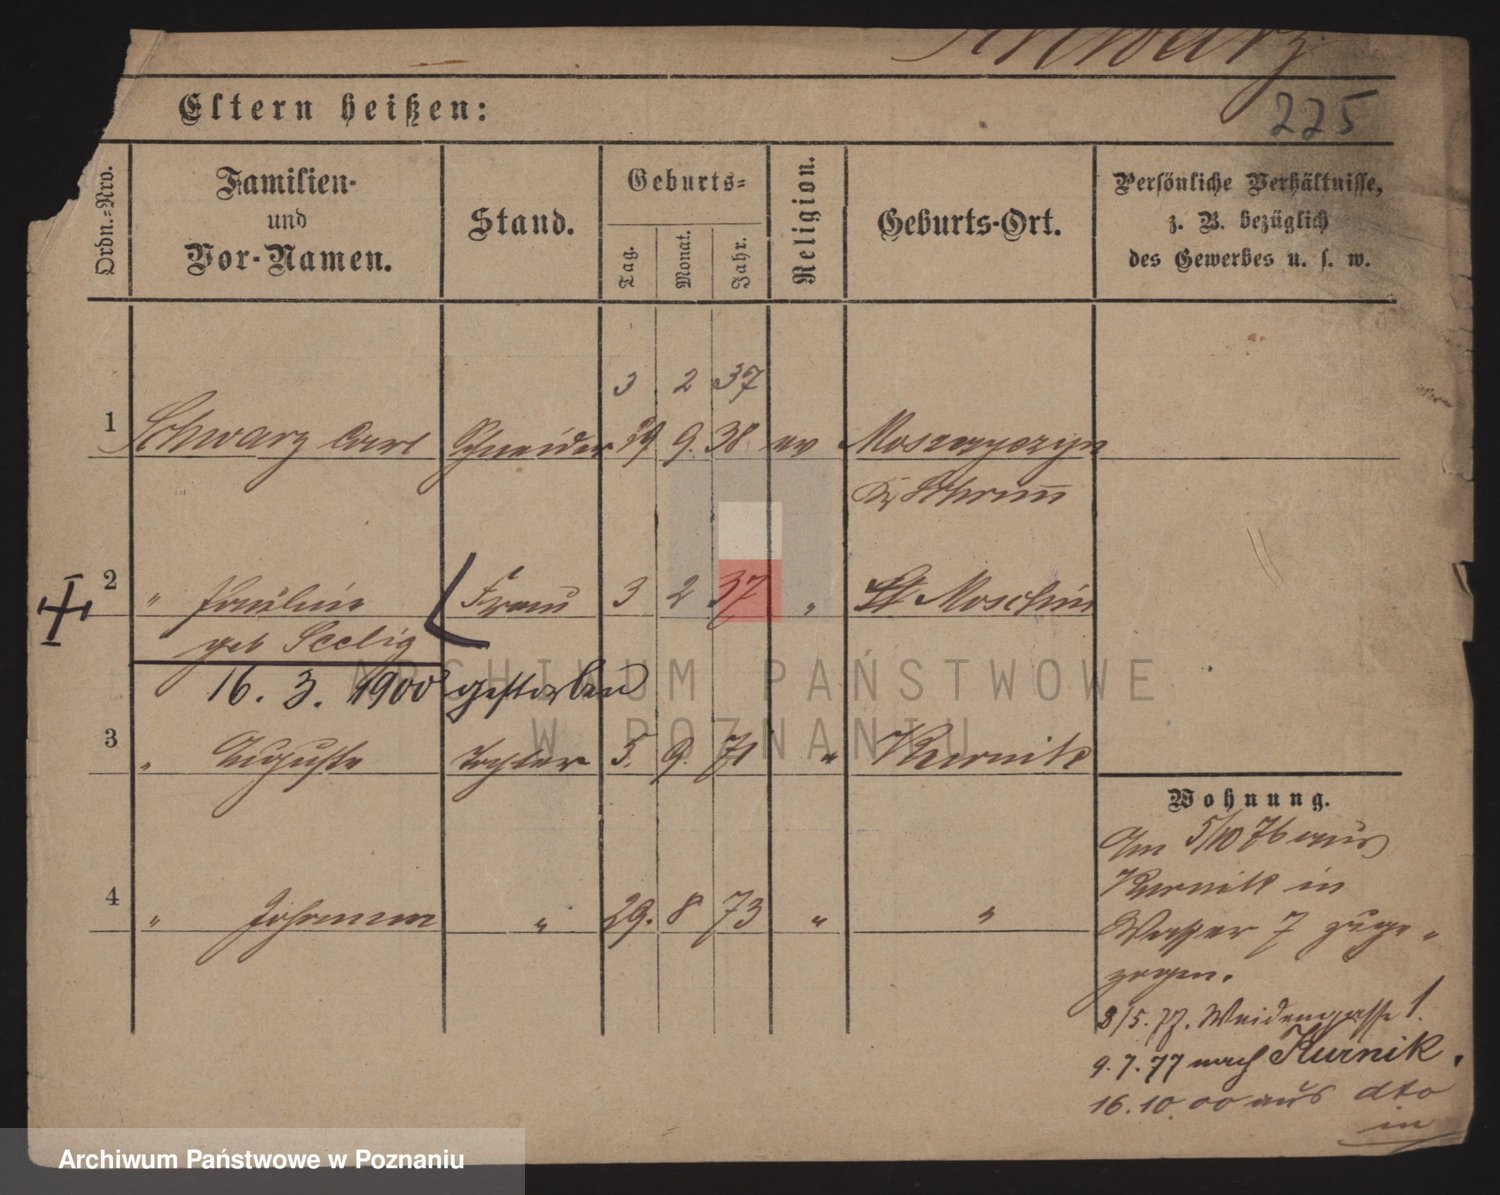 Schwarz
225
Eltern heißen:
Ordn.-Nro.
Familien-
und
Vor-Namen.
Stand.
Geburts-
Tag.
Monat.
Jahr.
Religion.
Geburts-Ort.
Persönliche Verhältnisse,
z. B. bezüglich
des Gewerbes u. s. w.
3 2 37
1 Schwarz Carl Schneider 29 9. 38 ev
Schrimm
2 " Pauline Frau 3 2 37 " Moschin
geb Seelig
16. 3. 1900 gestorben
3 " Auguste Tochter 5. 9. 71 " Kurnik
4 " Johanna " 29. 8 73 " "
Wohnung.
Am 5/10 76 aus
Kurnik in
Wasser 7 zuge-
zogen.
3/5. 77. Weidengasse 1.
9. 7. 77 nach Kurnik.
16. 10. 00 aus dto
in
ARCHIWUM PAŃSTWOWE
W POZNANIU
Archiwum Państwowe w Poznaniu